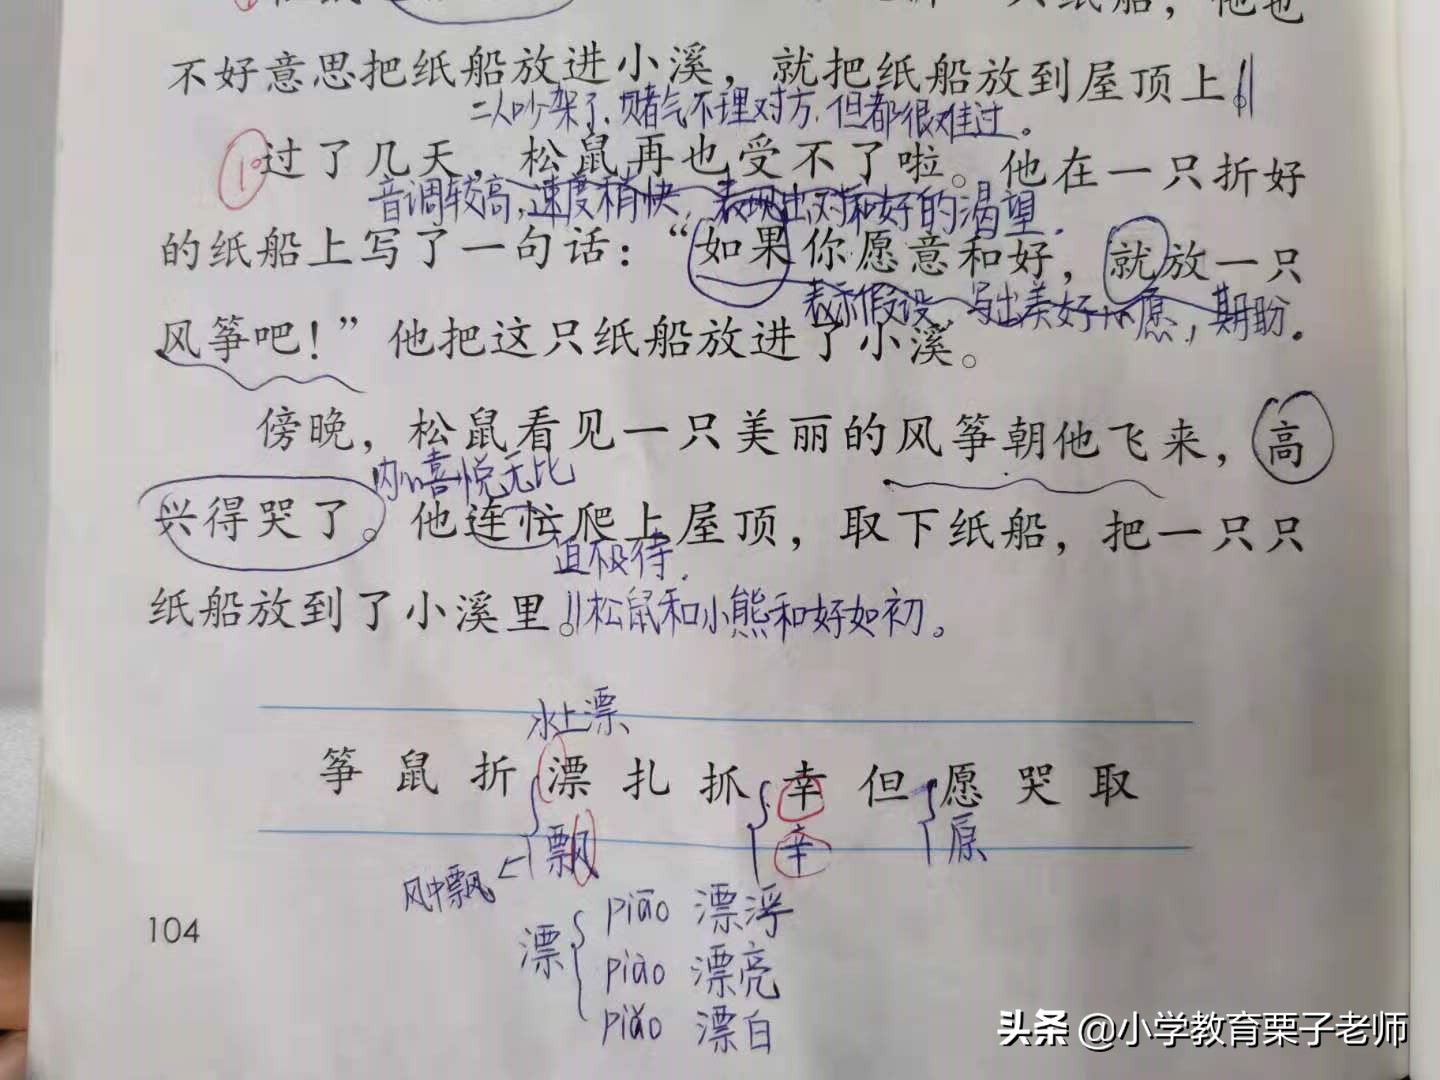 一只纸船，他也
不好意思把纸船放进小溪，就把纸船放到屋顶上。
二人吵架了，赌气不理对方，但都很难过。
1°过了几天，松鼠再也受不了啦。他在一只折好
音调较高，速度稍快，表现出对和好的渴望．
的纸船上写了一句话：“如果你愿意和好，就放一只
表示假设，写出美好心愿，期盼．
风筝吧！”他把这只纸船放进了小溪。
傍晚，松鼠看见一只美丽的风筝朝他飞来，高
内心喜悦无比
兴得哭了。他连忙爬上屋顶，取下纸船，把一只只
迫不及待．
纸船放到了小溪里。松鼠和小熊和好如初。
水上漂
筝 鼠 折 漂 扎 抓 幸 但 愿 哭 取
飘 辛 原
风中飘
104
漂 piāo 漂浮
piào 漂亮
piǎo 漂白
头条 @小学教育栗子老师